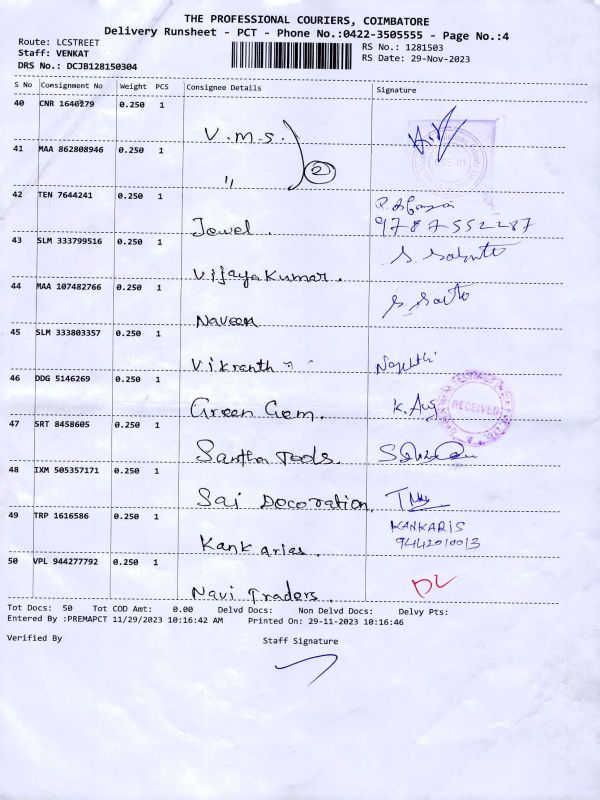 THE PROFESSIONAL COURIERS, COIMBATORE
Delivery Runsheet - PCT - Phone No.:0422-3505555 - Page No.:4
Route: LCSTREET
RS No.: 1281503
Staff: VENKAT
RS Date: 29-Nov-2023
DRS No.: DCJB128150304
S No Consignment No Weight PCS Consignee Details Signature
40 CNR 1640279 0.250 1
V.M.S.
41 MAA 862808946 0.250 1
" 2
42 TEN 7644241 0.250 1
Jewel.
9787552287
43 SLM 333799516 0.250 1
Vijaya Kumar.
44 MAA 107482766 0.250 1
Naveen
45 SLM 333803357 0.250 1
Vikranth
46 DDG 5146269 0.250 1
Green Gem. K. RECEIVED
47 SRT 8458605 0.250 1
Santha Tools.
48 IXM 505357171 0.250 1
Sai Docoration.
49 TRP 1616586 0.250 1
KANKARIS
Kankarias. 9442010013
50 VPL 944277792 0.250 1
Navi Traders. DL
Tot Docs: 50 Tot COD Amt: 0.00 Delvd Docs: Non Delvd Docs: Delvy Pts:
Entered By :PREMAPCT 11/29/2023 10:16:42 AM Printed On: 29-11-2023 10:16:46
Verified By Staff Signature